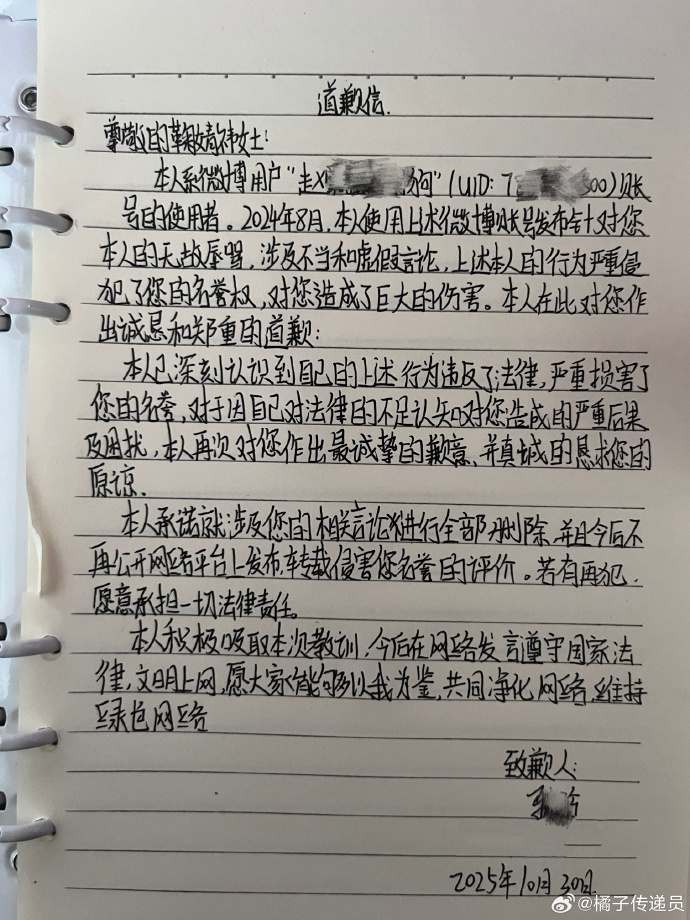 道歉信.
尊敬的鞠婧祎女士:
本人系微博用户"赵X 狗"(UID: 7 300)账
号的使用者。2024年8月,本人使用上述微博账号发布针对您
本人的无故辱骂,涉及不当和虚假言论,上述本人的行为严重侵
犯了您的名誉权,对您造成了巨大的伤害。本人在此对您作
出诚恳和郑重的道歉:
本人已深刻认识到自己的上述行为违反了法律,严重损害了
您的名誉,对于因自己对法律的不足认知对您造成的严重后果
及困扰,本人再次对您作出最诚挚的歉意,并真诚的恳求您的
原谅.
本人承诺就涉及您的相关言论进行全部删除,并且今后不
再公开网络平台上发布,转载侵害您名誉的评价。若有再犯,
愿意承担一切法律责任。
本人积极吸取本次教训,今后在网络发言遵守国家法
律,文明上网,愿大家能够以我为鉴,共同净化网络,维持
绿色网络
致歉人:
2025年10月30日.
@橘子传递员